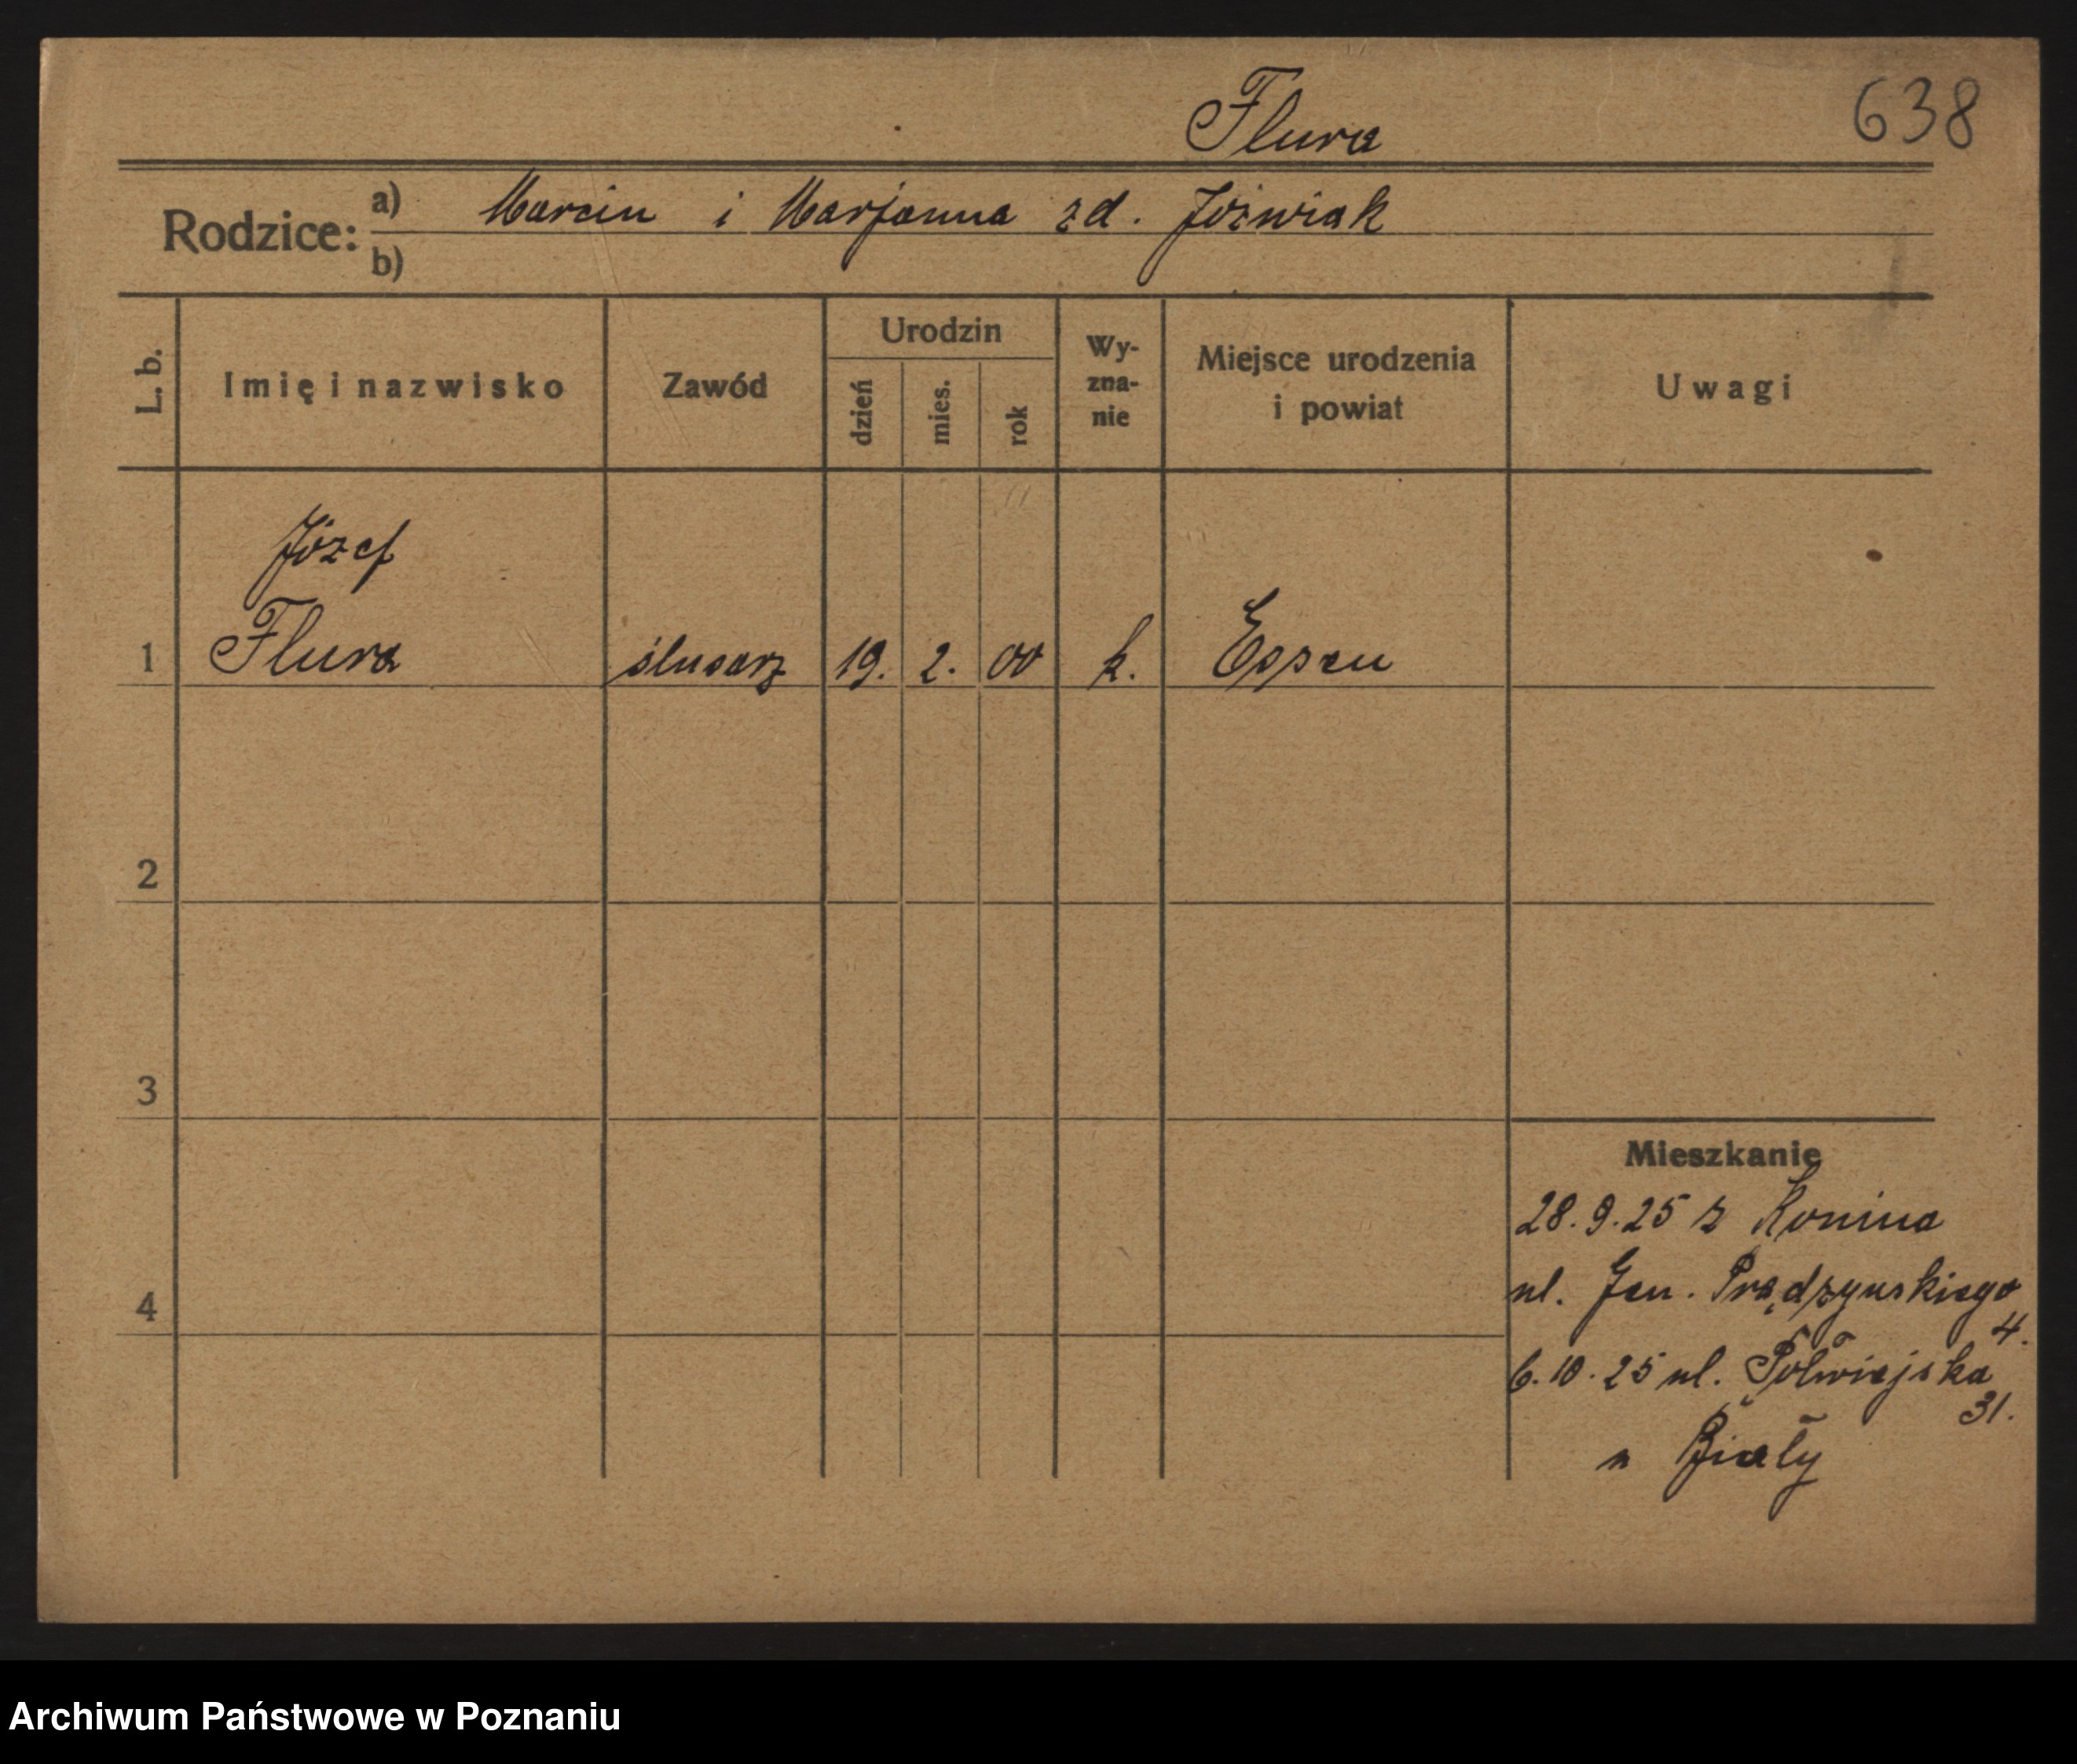 Flura
638
Rodzice: a) Marcin i Marjanna zd. Jóżwiak
b)
L. b.
Imię i nazwisko
Zawód
Urodzin
dzień
mies.
rok
Wy-
zna-
nie
Miejsce urodzenia
i powiat
Uwagi
Józef
1 Flura ślusarz 19. 2. 00 k. Essen
2
3
4
Mieszkanie
28.9.25 z Konina
ul. Jen. Prądzyńskiego
4.
6.10.25 ul. Półwiejska
31.
u Biały
Archiwum Państwowe w Poznaniu